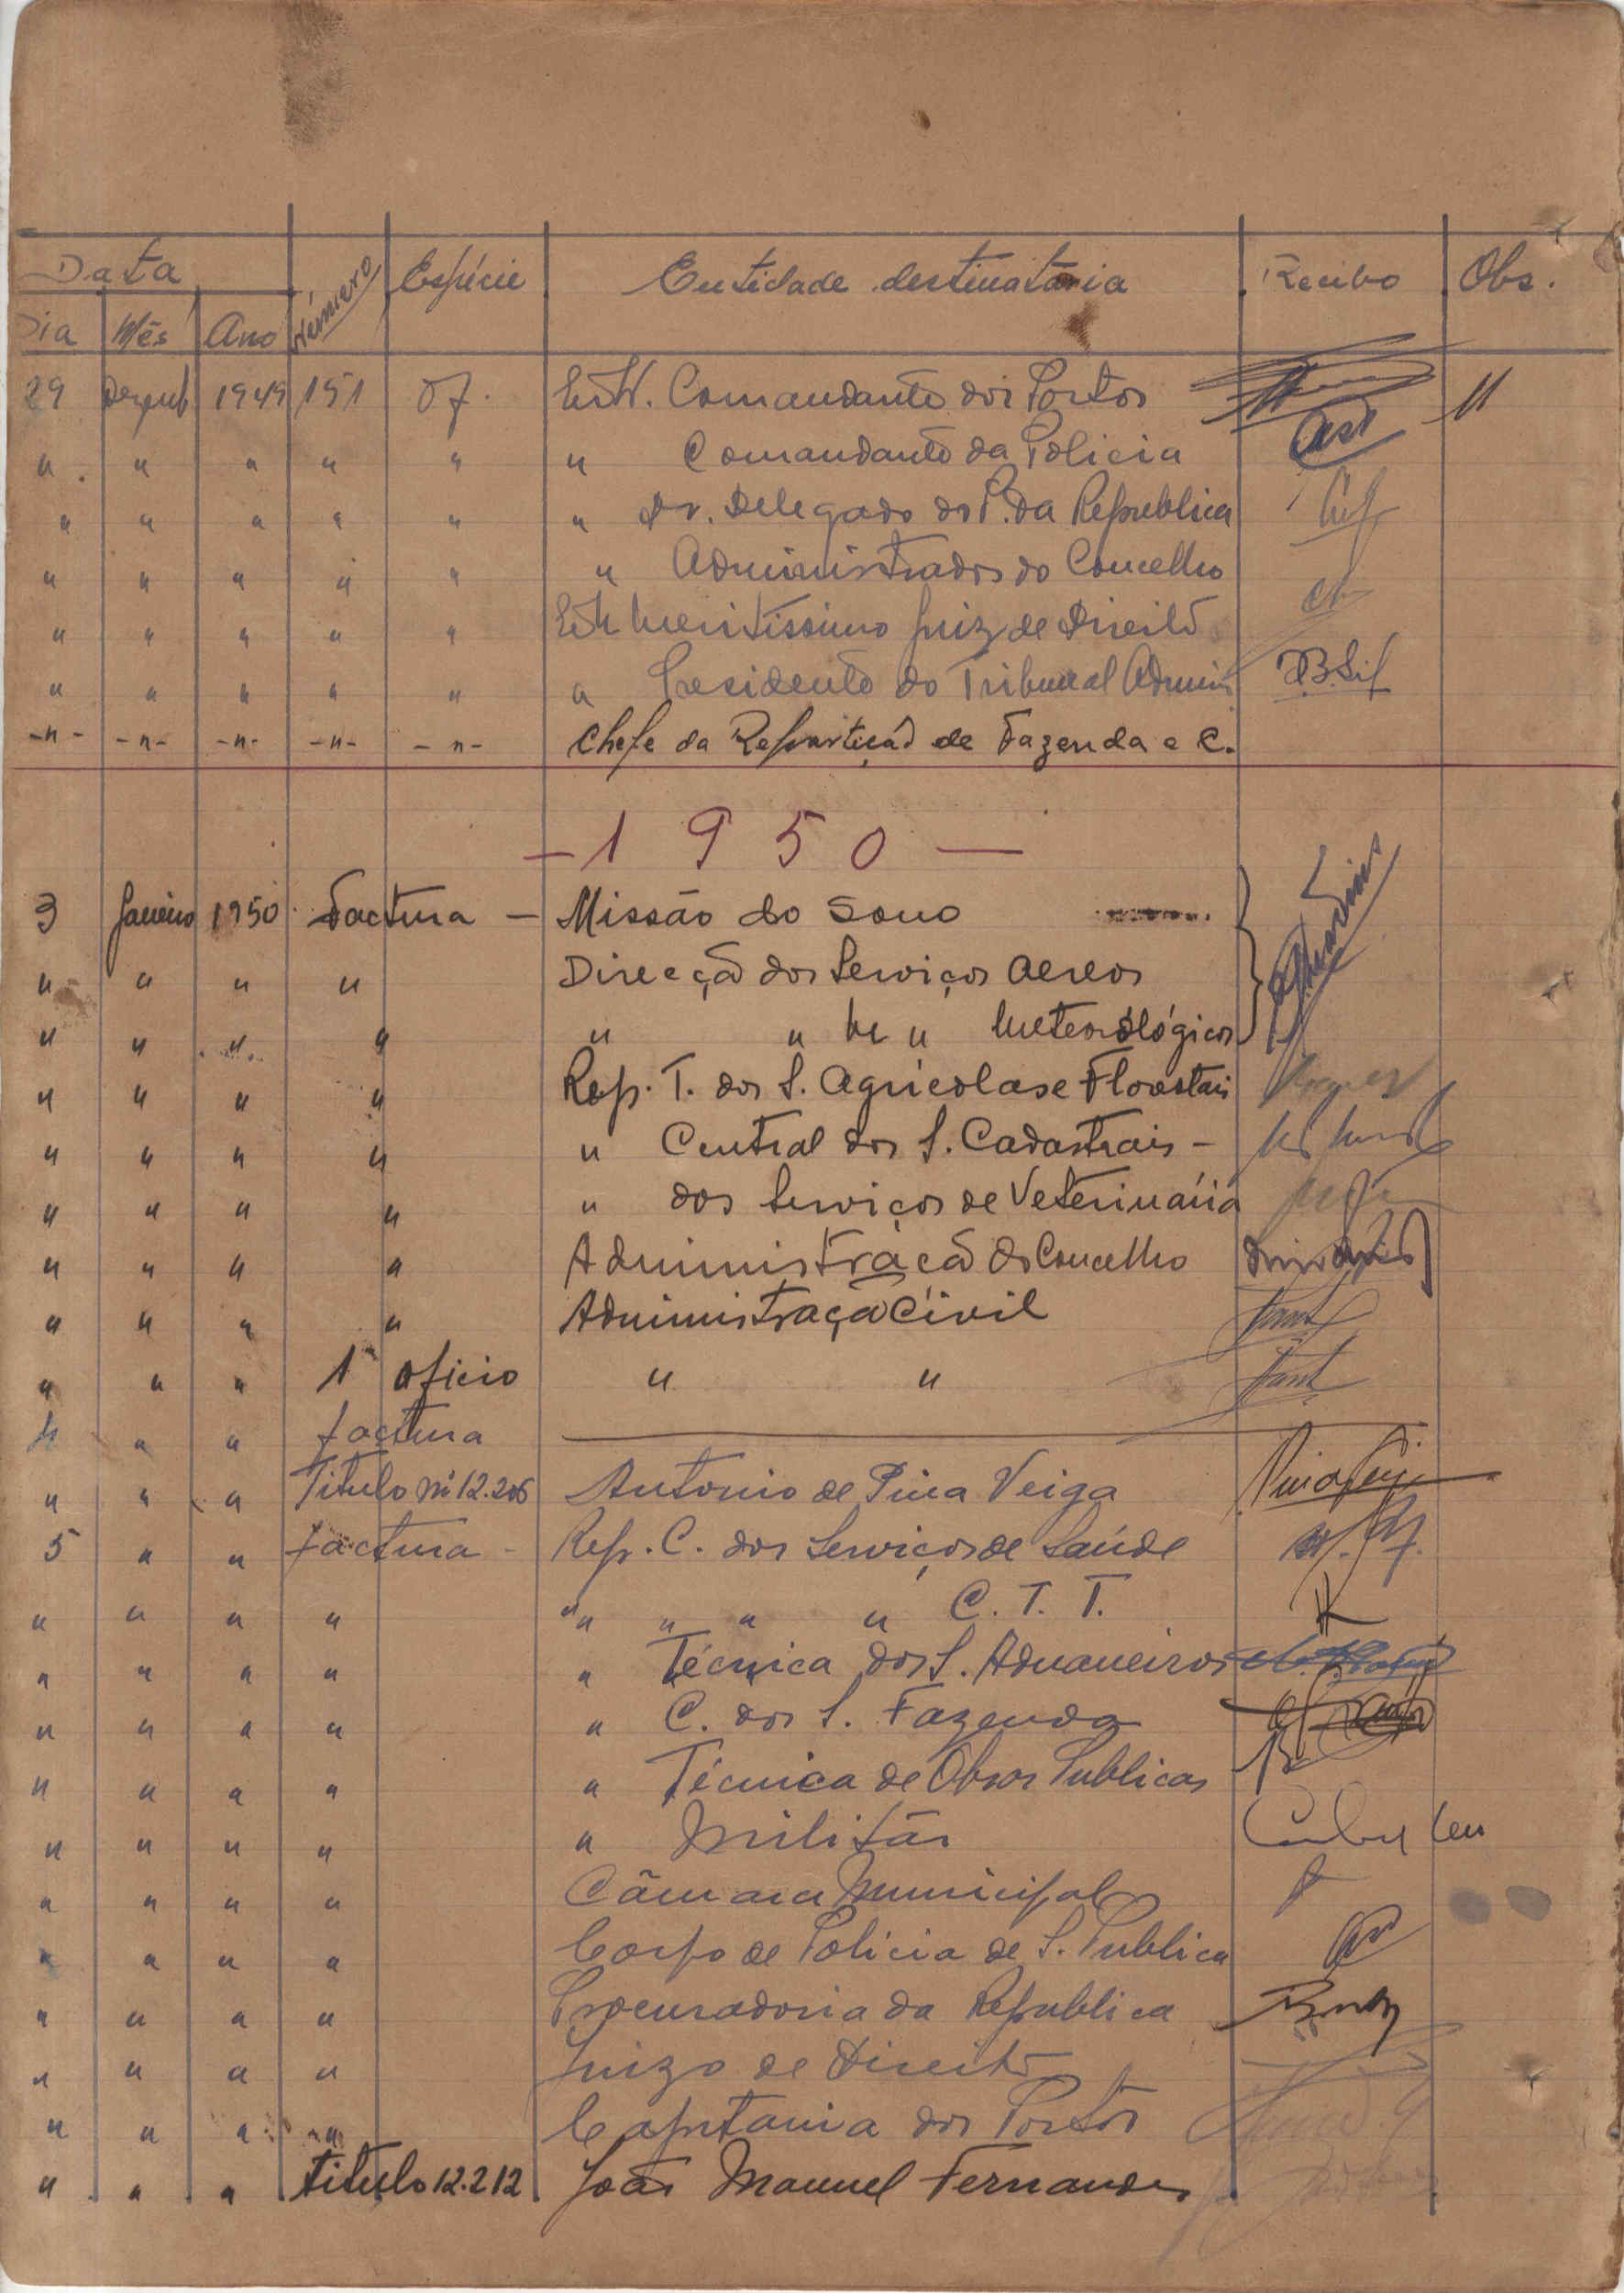 Data Número Espécie Entidade destinataria Recibo Obs.
Dia Mês Ano
29 Dezemb 1949 151 Of. Comandante dos Portos
" " " " " " Comandante da Policia
" " " " " " Dr. Delegado do P. da Republica
" " " " " " Administrador do Concelho
" " " " " Meritissimo Juiz de Direito
" " " " " " Presidente do Tribunal Admin
-"- -"- -"- -"- -"- Chefe da Repartição de Fazenda e C.
- 1950 -
3 Janeiro 1950 Factura - Missão do Sono
" " " " Direcção dos Serviços Aereos
" " " " " " " Meteorológicos
" " " " Rep. T. dos S. Agricolas e Florestais
" " " " " Central dos S. Cadastrais -
" " " " " dos Serviços de Veterinária
" " " " Administração do Concelho
" " " " Administração Civil
" " " 1 oficio " "
4 " " factura
" " " Titulo nº 12.206 Antonio de Pina Veiga
5 " " factura - Rep. C. dos Serviços de Saúde
" " " " " " " " " C. T. T.
" " " " " Técnica dos S. Aduaneiros
" " " " " C. dos S. Fazenda
" " " " " Técnica de Obras Publicas
" " " " " Militar
" " " " Câmara Municipal
" " " " Corpo de Policia de S. Publica
" " " " Procuradoria da Republica
" " " " Juizo de Direito
" " " " Capitania dos Portos
" " " titulo 12.212 João Manuel Fernandes